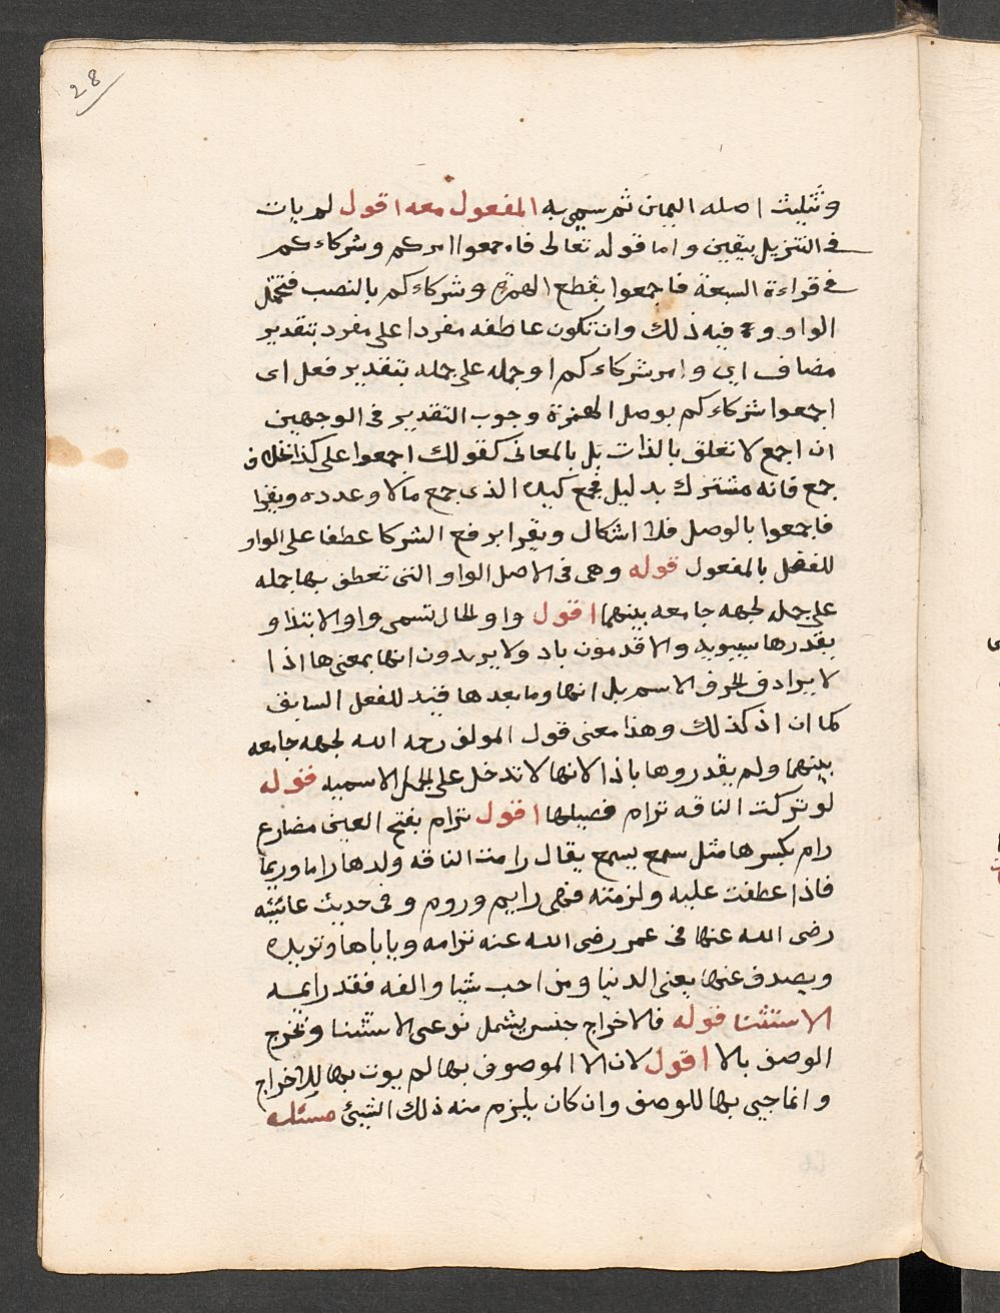 28
وتثليث اصله اليمين ثم سمي به المفعول معه اقول لم يات
في التنزيل بيقين واما قوله تعالى فاجمعوا امركم وشركاءكم
في قراءة السبعة فاجمعوا بقطع الهمزة وشركاءكم بالنصب فتحتمل
الواو فيه ذلك وان تكون عاطفه مفردا على مفرد بتقدير
مضاف اي وامر شركاءكم او جمله على جمله بتقدير فعل اى
اجمعوا شركاءكم بوصل الهمزة وجوب التقدير في الوجهين
ان اجمع لا تتعلق بالذات بل بالمعانى كقولك اجمعوا على كذا بخلاف
جمع فانه مشترك بدليل فجمع كيده الذى جمع مالا وعدده ويقرا
فاجمعوا بالوصل فلا اشكال ويقرا برفع الشركا عطفا على الواو
للفصل بالمفعول قوله وهى فى الاصل الواو التى تعطف بها جمله
على جمله لجهه جامعه بينهما اقول واو الحال تسمى واو الابتدا و
يقدرها سيبويه والاقدمون باذ ولا يريدون انها بمعنى ها اذ ا
لا يرادف الحرف الاسم بل انها وما بعدها قيد للفعل السابق
كما ان اذ كذلك وهذا معنى قول المولف رحمه الله لجهه جامعه
بينهما ولم يقدروها باذا لانها لا تدخل على الجمل الاسميه قوله
لو تركت الناقه ترام فصيلها اقول ترام بفتح العين مضارع
رام بكسرها مثل سمع يسمع يقال رامت الناقه ولدها راما وريما
فاذا عطفت عليه ولزمته فهى رايم وروم وفى حديث عائيشه
رضى الله عنها فى عمر رضى الله عنه ترامه وياباها وتريده
ويصدف عنها يعنى الدنيا ومن احب شيا والفه فقد رايمه
الاستثنا قوله فالاخراج جنس يشمل نوعى الاستثنا وتخرج
الوصف بالا اقول لان الا الموصوف بها لم يوت بها للاخراج
وانما جيى بها للوصف وان كان يلزم منه ذلك الشيئ مسئله